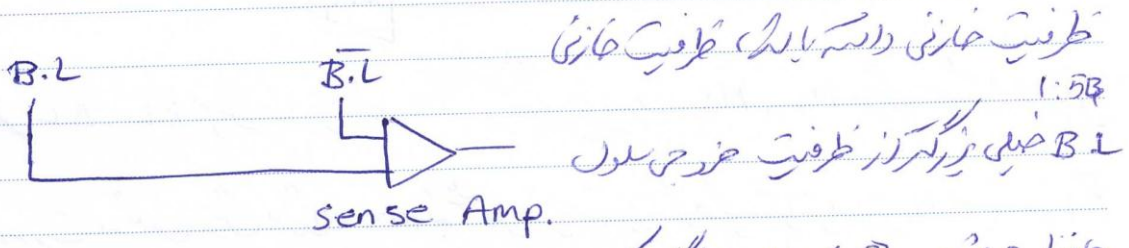 ظرفیت خازنی داشته باشد، ظرفیت خازنی
B.L
B.L
B.L خیلی بزرگتر از ظرفیت خروجی سلول
sense Amp.